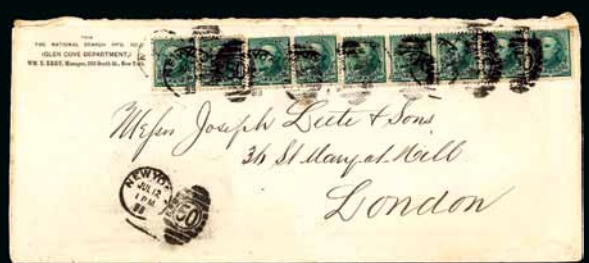 THE NATIONAL STARCH MFG. CO.
(GLEN COVE DEPARTMENT,)
Manager, South St., New York
Messrs Joseph Leete & Sons
36 St Mary at Hill
London
NEW YO
JUL 12
1 PM
50